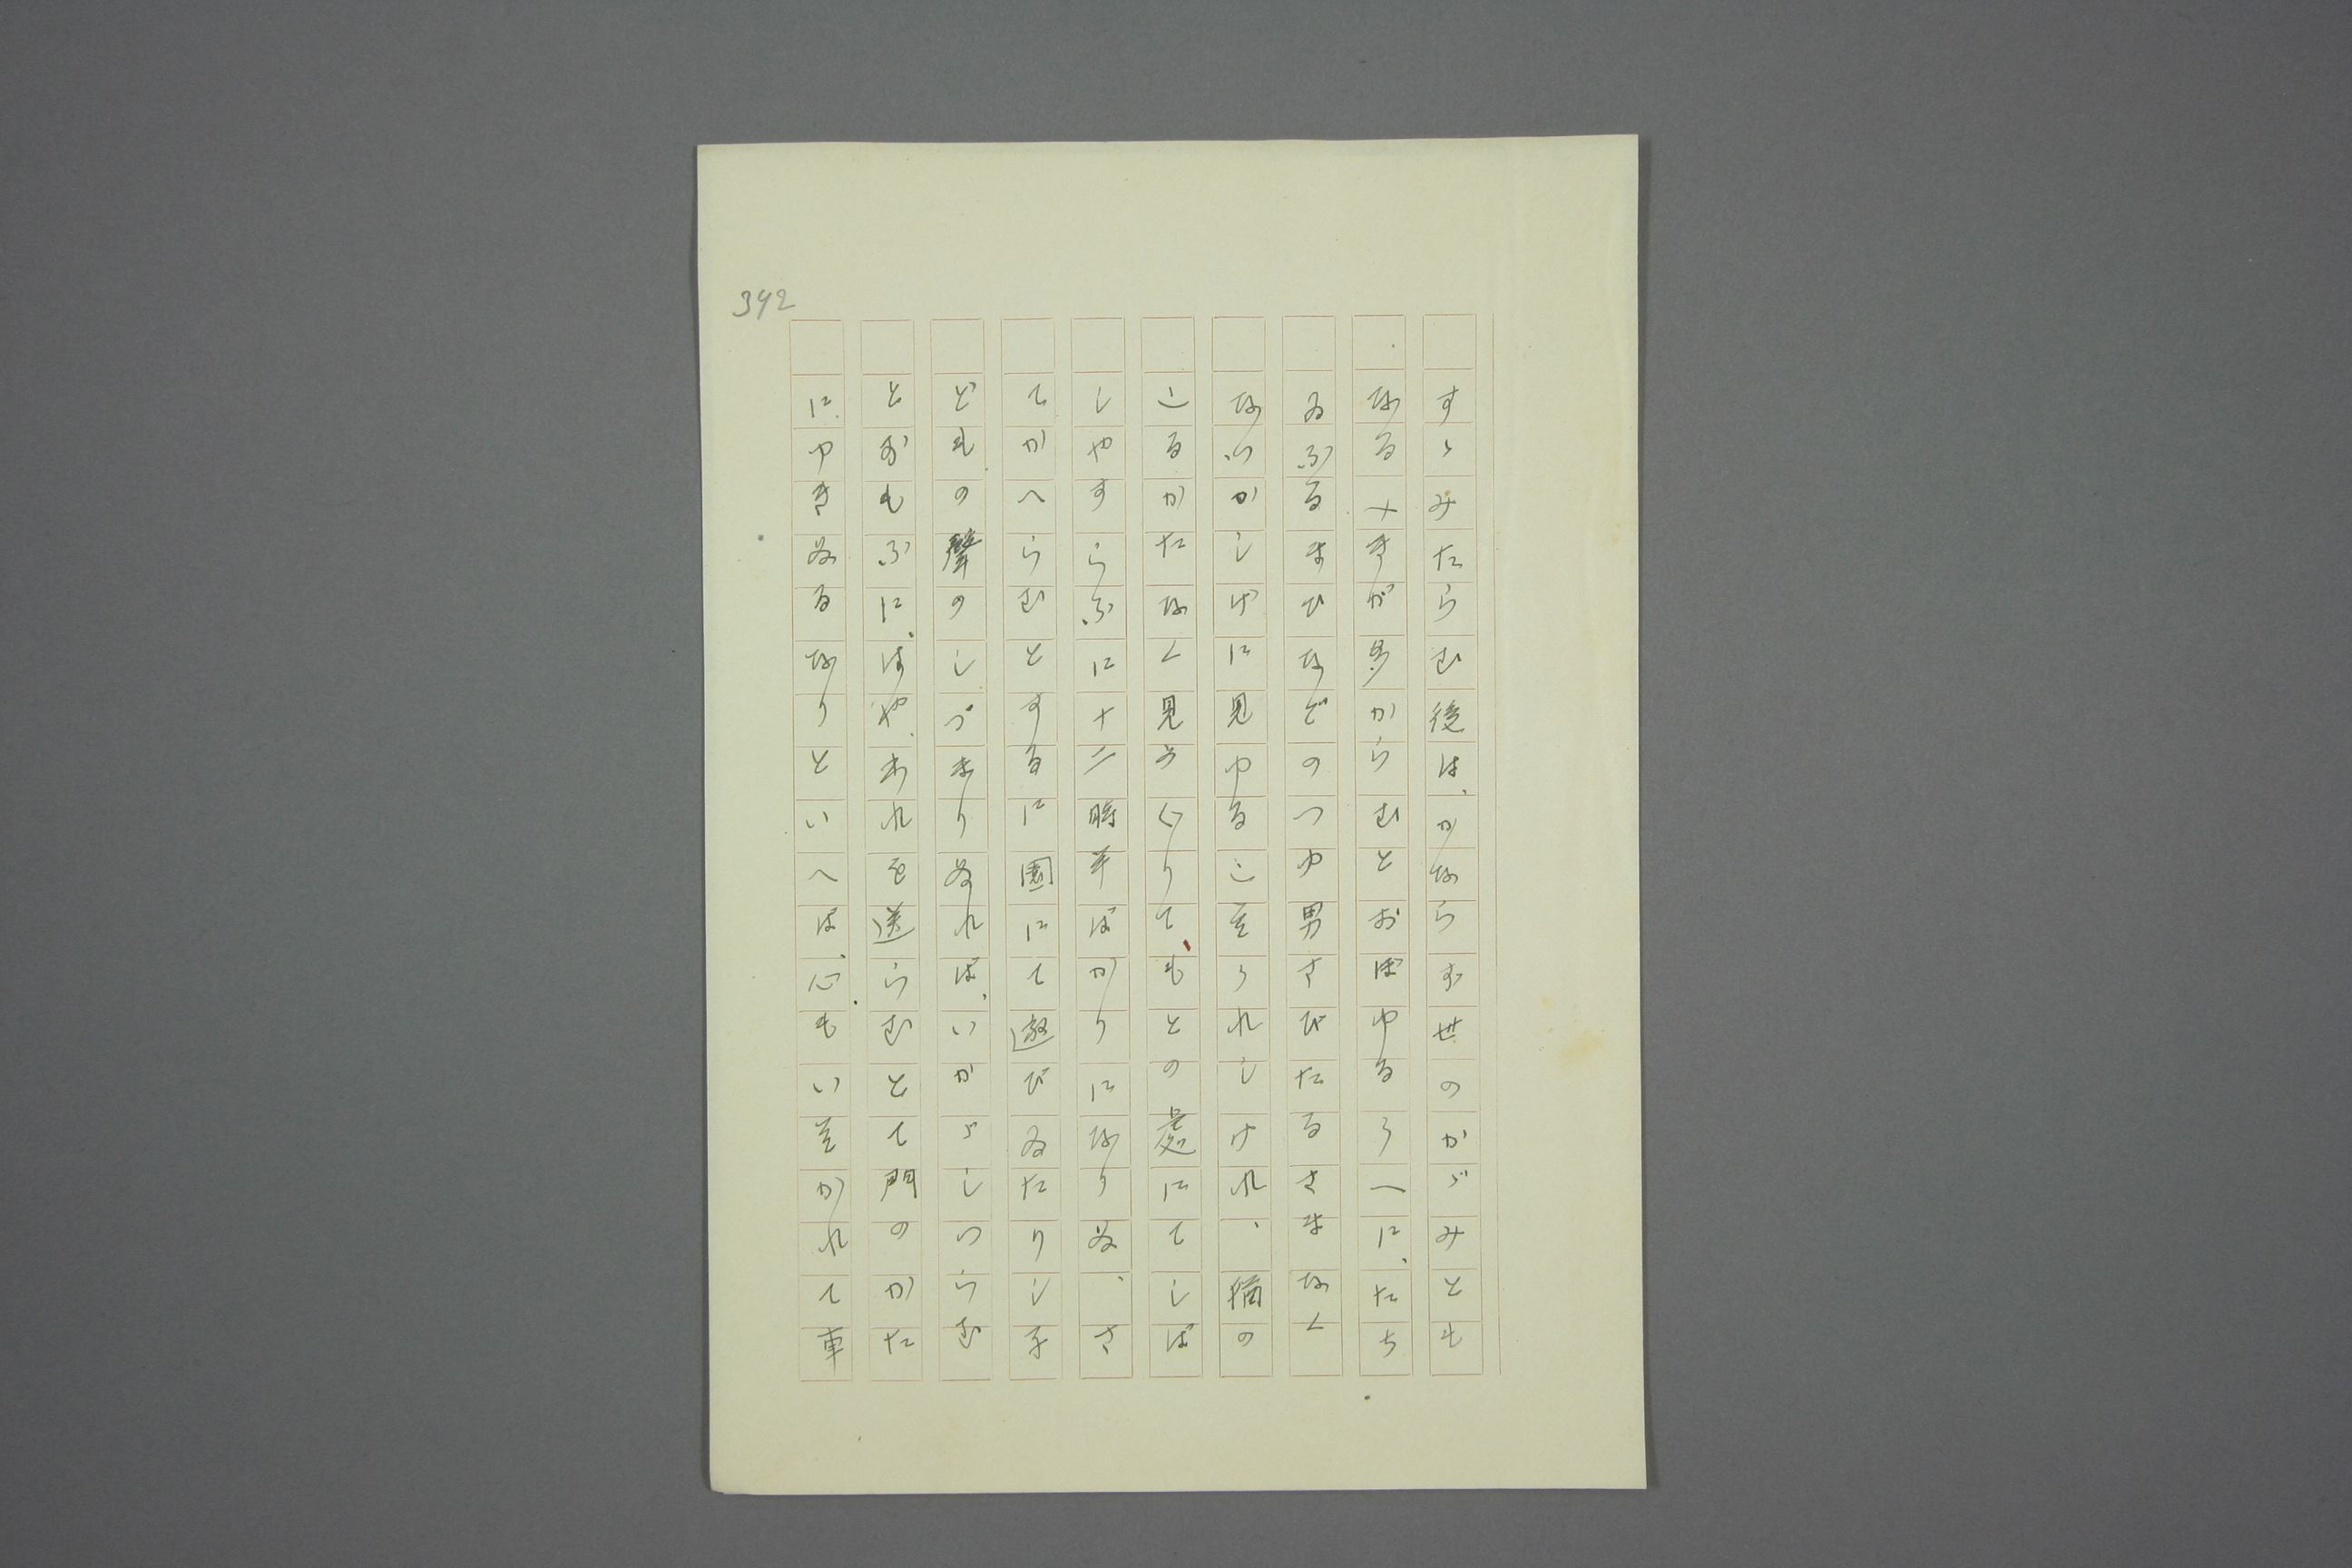 392
すゝみたらむ後は、かならず世のかゞみとも
なるべきが多からむとおぼゆるうへに、たち
ゐふるまひなどのつゆ男さびたるさまなく
なつかしげに見ゆるこそうれしけれ、猶の
こるかたなく見めぐりて、もとの處にてしば
しやすらふに十二時半ばかりになりぬ、さ
てかへらむとするに園にて遊びゐたりし子
どもの聲のしづまりぬれば、いかゞしつらむ
とおもふに、はや、われを送らむとて門のかた
にゆきぬるなりといへば、心もいそがれて車